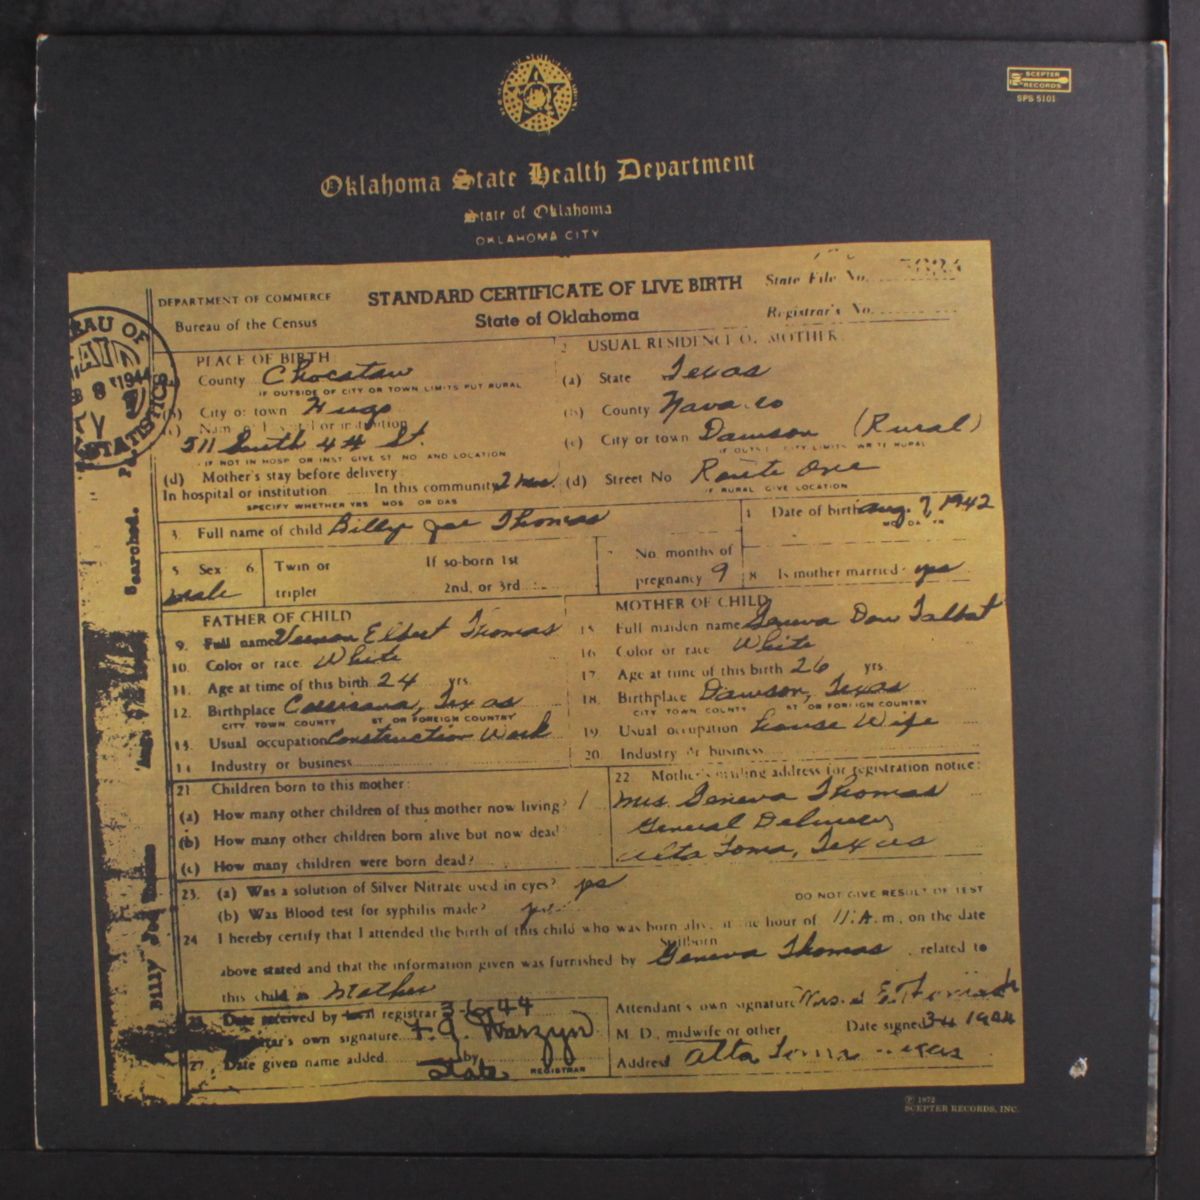 SCEPTER
RECORDS
SPS 5101
Oklahoma State Health Department
State of Oklahoma
OKLAHOMA CITY
DEPARTMENT OF COMMERCE
Bureau of the Census
STANDARD CERTIFICATE OF LIVE BIRTH
State of Oklahoma
State File No.
Registrar's No.
1944
STATISTICS
Searched.
PLACE OF BIRTH
County Chocataw
IF OUTSIDE OF CITY OR TOWN LIMITS PUT RURAL
City or town Hugo
511 South 4th St.
IF NOT IN HOSP OR INST GIVE ST. NO AND LOCATION
(d) Mother's stay before delivery:
In hospital or institution In this community 2 mos.
SPECIFY WHETHER YRS MOS OR DAS
2 USUAL RESIDENCE OF MOTHER
(a) State Texas
(b) County Navarro
(c) City or town Dawson (Rural)
IF OUTSIDE CITY LIMITS WRITE RURAL
(d) Street No Route One
IF RURAL GIVE LOCATION
3. Full name of child Billy Joe Thomas
4 Date of birth Aug. 7, 1942
MO DA YR
5 Sex: male
6. Twin or triplet
If so-born 1st
2nd, or 3rd
7 No. months of
pregnancy 9
8 Is mother married? yes
FATHER OF CHILD
9. Full name Vernon Elbert Thomas
10. Color or race White
11. Age at time of this birth 24 yrs.
12. Birthplace Corsicana, Texas
CITY TOWN COUNTY ST OR FOREIGN COUNTRY
13. Usual occupation Construction Work
14 Industry or business
MOTHER OF CHILD
15 Full maiden name Geneva Dow Talbot
16 Color or race White
17 Age at time of this birth 26 yrs.
18. Birthplace Dawson, Texas
CITY TOWN COUNTY ST OR FOREIGN COUNTRY
19. Usual occupation house Wife
20. Industry or business
21 Children born to this mother:
(a) How many other children of this mother now living? 1
(b) How many other children born alive but now dead
(c) How many children were born dead?
22 Mother's mailing address for registration notice:
Mrs. Geneva Thomas
General Delivery
Alta Loma, Texas
23. (a) Was a solution of Silver Nitrate used in eyes? yes
DO NOT GIVE RESULT OF TEST
(b) Was Blood test for syphilis made? yes
24 I hereby certify that I attended the birth of this child who was born alive at the hour of 11: A.m. on the date
Stillborn
above stated and that the information given was furnished by Geneva Thomas related to
this child as Mother
Date received by local registrar 3-6-44
Registrar's own signature F. J. Warzyn
27 Date given name added by State
REGISTRAR
Attendant's own signature
M. D., midwife or other Date signed
Address Alta Loma Texas
BILLY Joe Thomas
℗ 1972
SCEPTER RECORDS, INC.